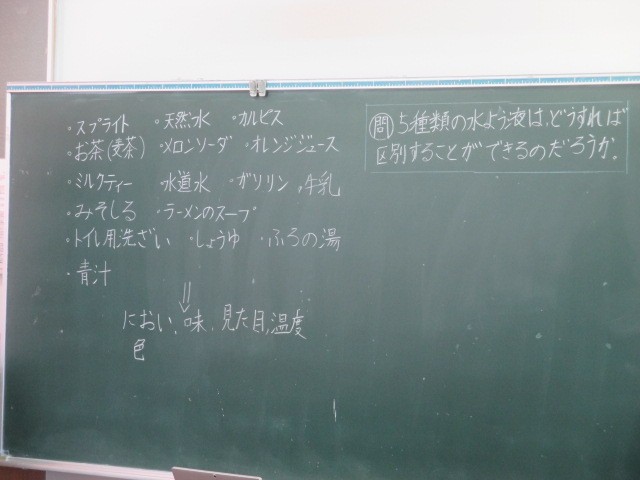 ・スプライト ・天然水 ・カルピス
・お茶(麦茶) ・メロンソーダ ・オレンジジュース
・ミルクティー 水道水 ・ガソリン ・牛乳
・みそしる ・ラーメンのスープ
・トイレ用洗ざい ・しょうゆ ・ふろの湯
・青汁
⇓
におい、味、見た目、温度
色
問 5種類の水よう液は、どうすれば
区別することができるのだろうか。